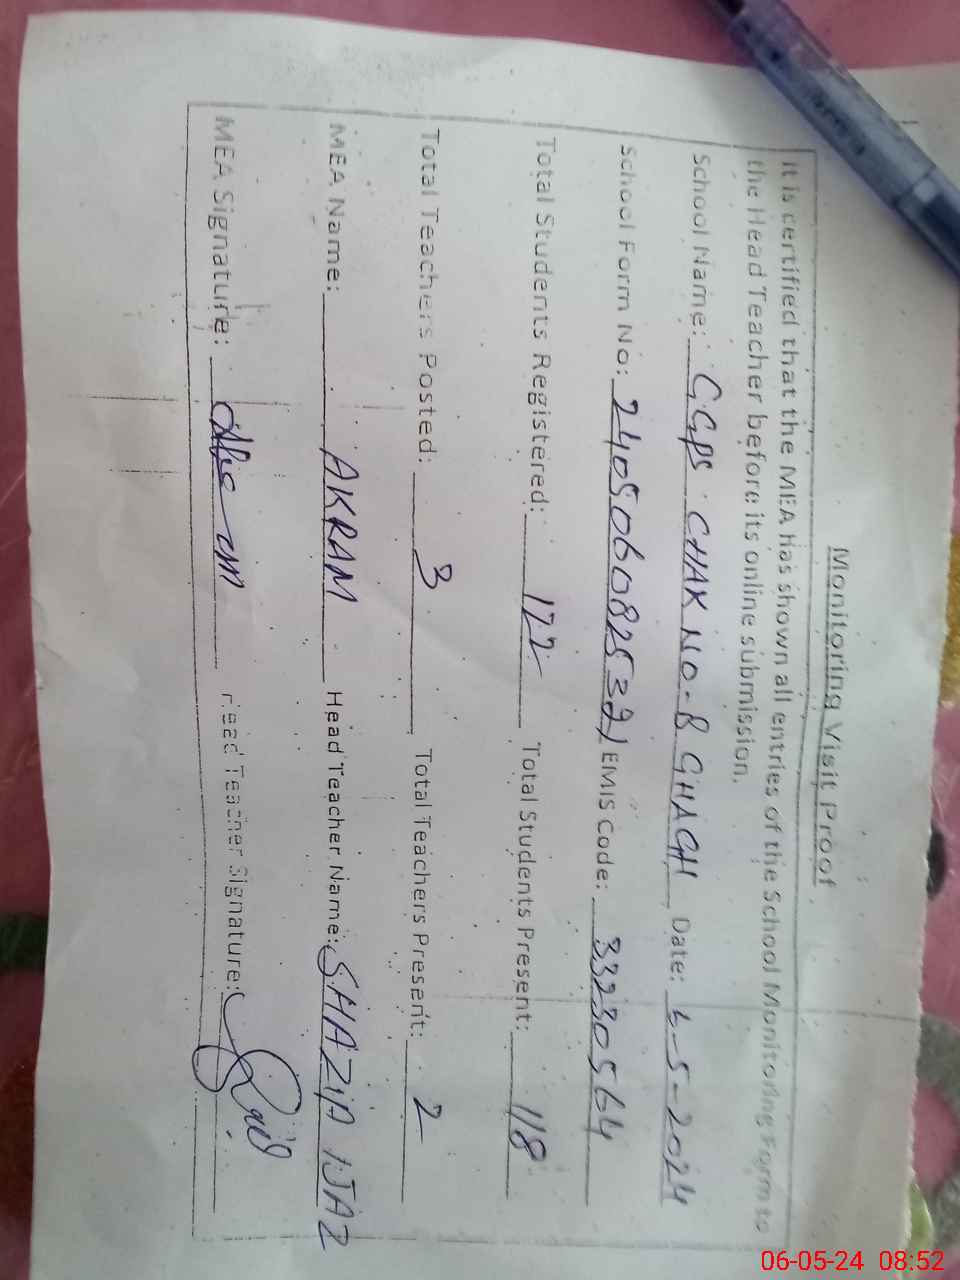 Monitoring Visit Proof
It is certified that the MEA has shown all entries of the School Monitoring Form to
the Head Teacher before its online submission.
School Name: GGPS CHAK NO-8 GHAGH Date: 6-5-2024
School Form No: 240506082532) EMIS Code: 33230564
Total Students Registered: 122 Total Students Present: 118
Total Teachers Posted: 3 Total Teachers Present: 2
MEA Name: AKRAM Head Teacher Name: SHAZIA IJAZ
MEA Signature: Head Teacher Signature:
06-05-24 08:52